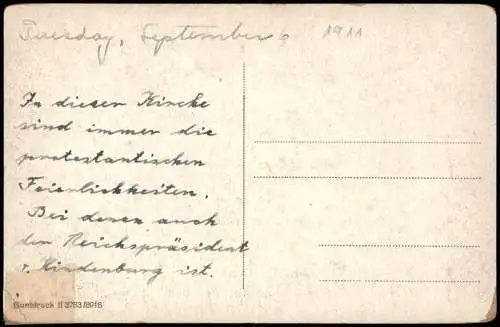 Tuesday, September 6 1911
In dieser Kirche
sind immer die
protestantischen
Feierlichkeiten.
Bei denen auch
der Reichspräsident
v. Hindenburg ist.
Buntdruck II 3763/8918